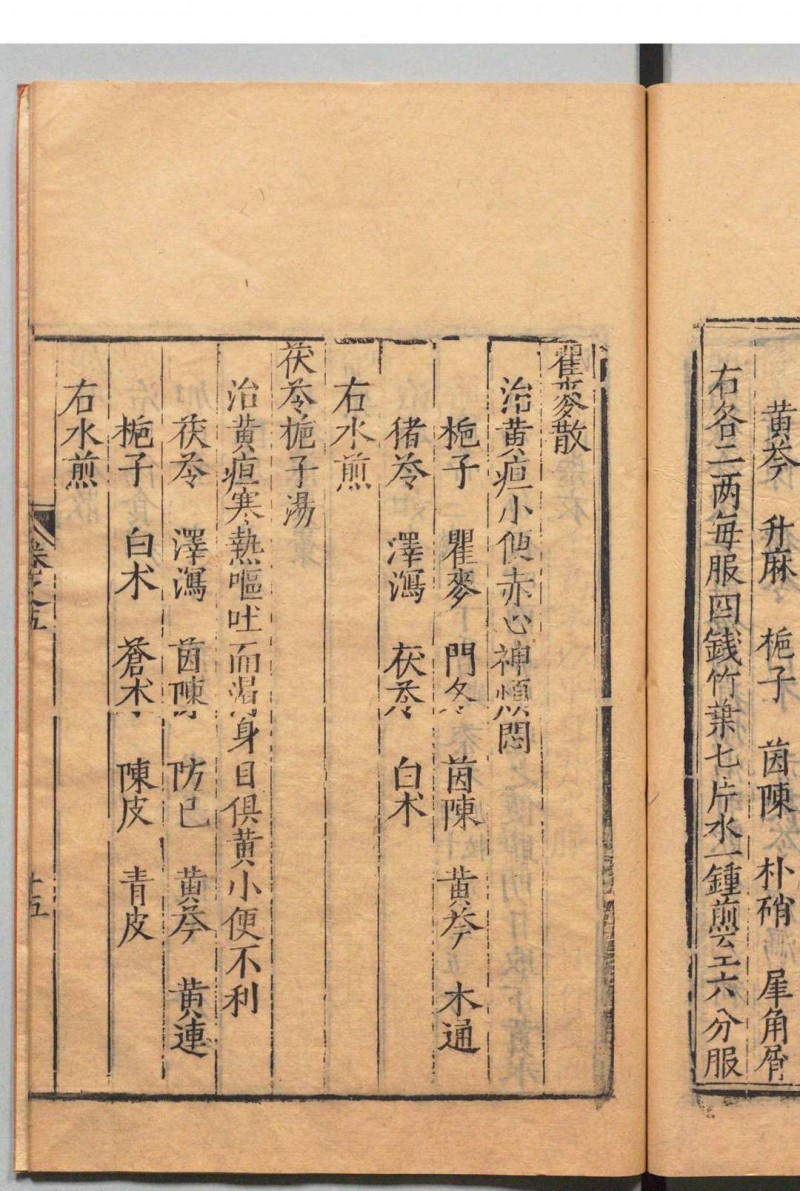 黃芩 升麻 梔子 茵陳 朴硝 犀角屑
右各二两每服四錢竹葉七片水一鍾煎至六分服
瞿麥散
治黃疸小便赤心神煩悶
梔子 瞿麥 門冬 茵陳 黃芩 木通
猪苓 澤瀉 茯苓 白术
右水煎
茯苓梔子湯
治黃疸寒熱嘔吐而渴身目俱黃小便不利
茯苓 澤瀉 茵陳 防己 黃芩 黃連
梔子 白术 蒼术 陳皮 青皮
右水煎
十五